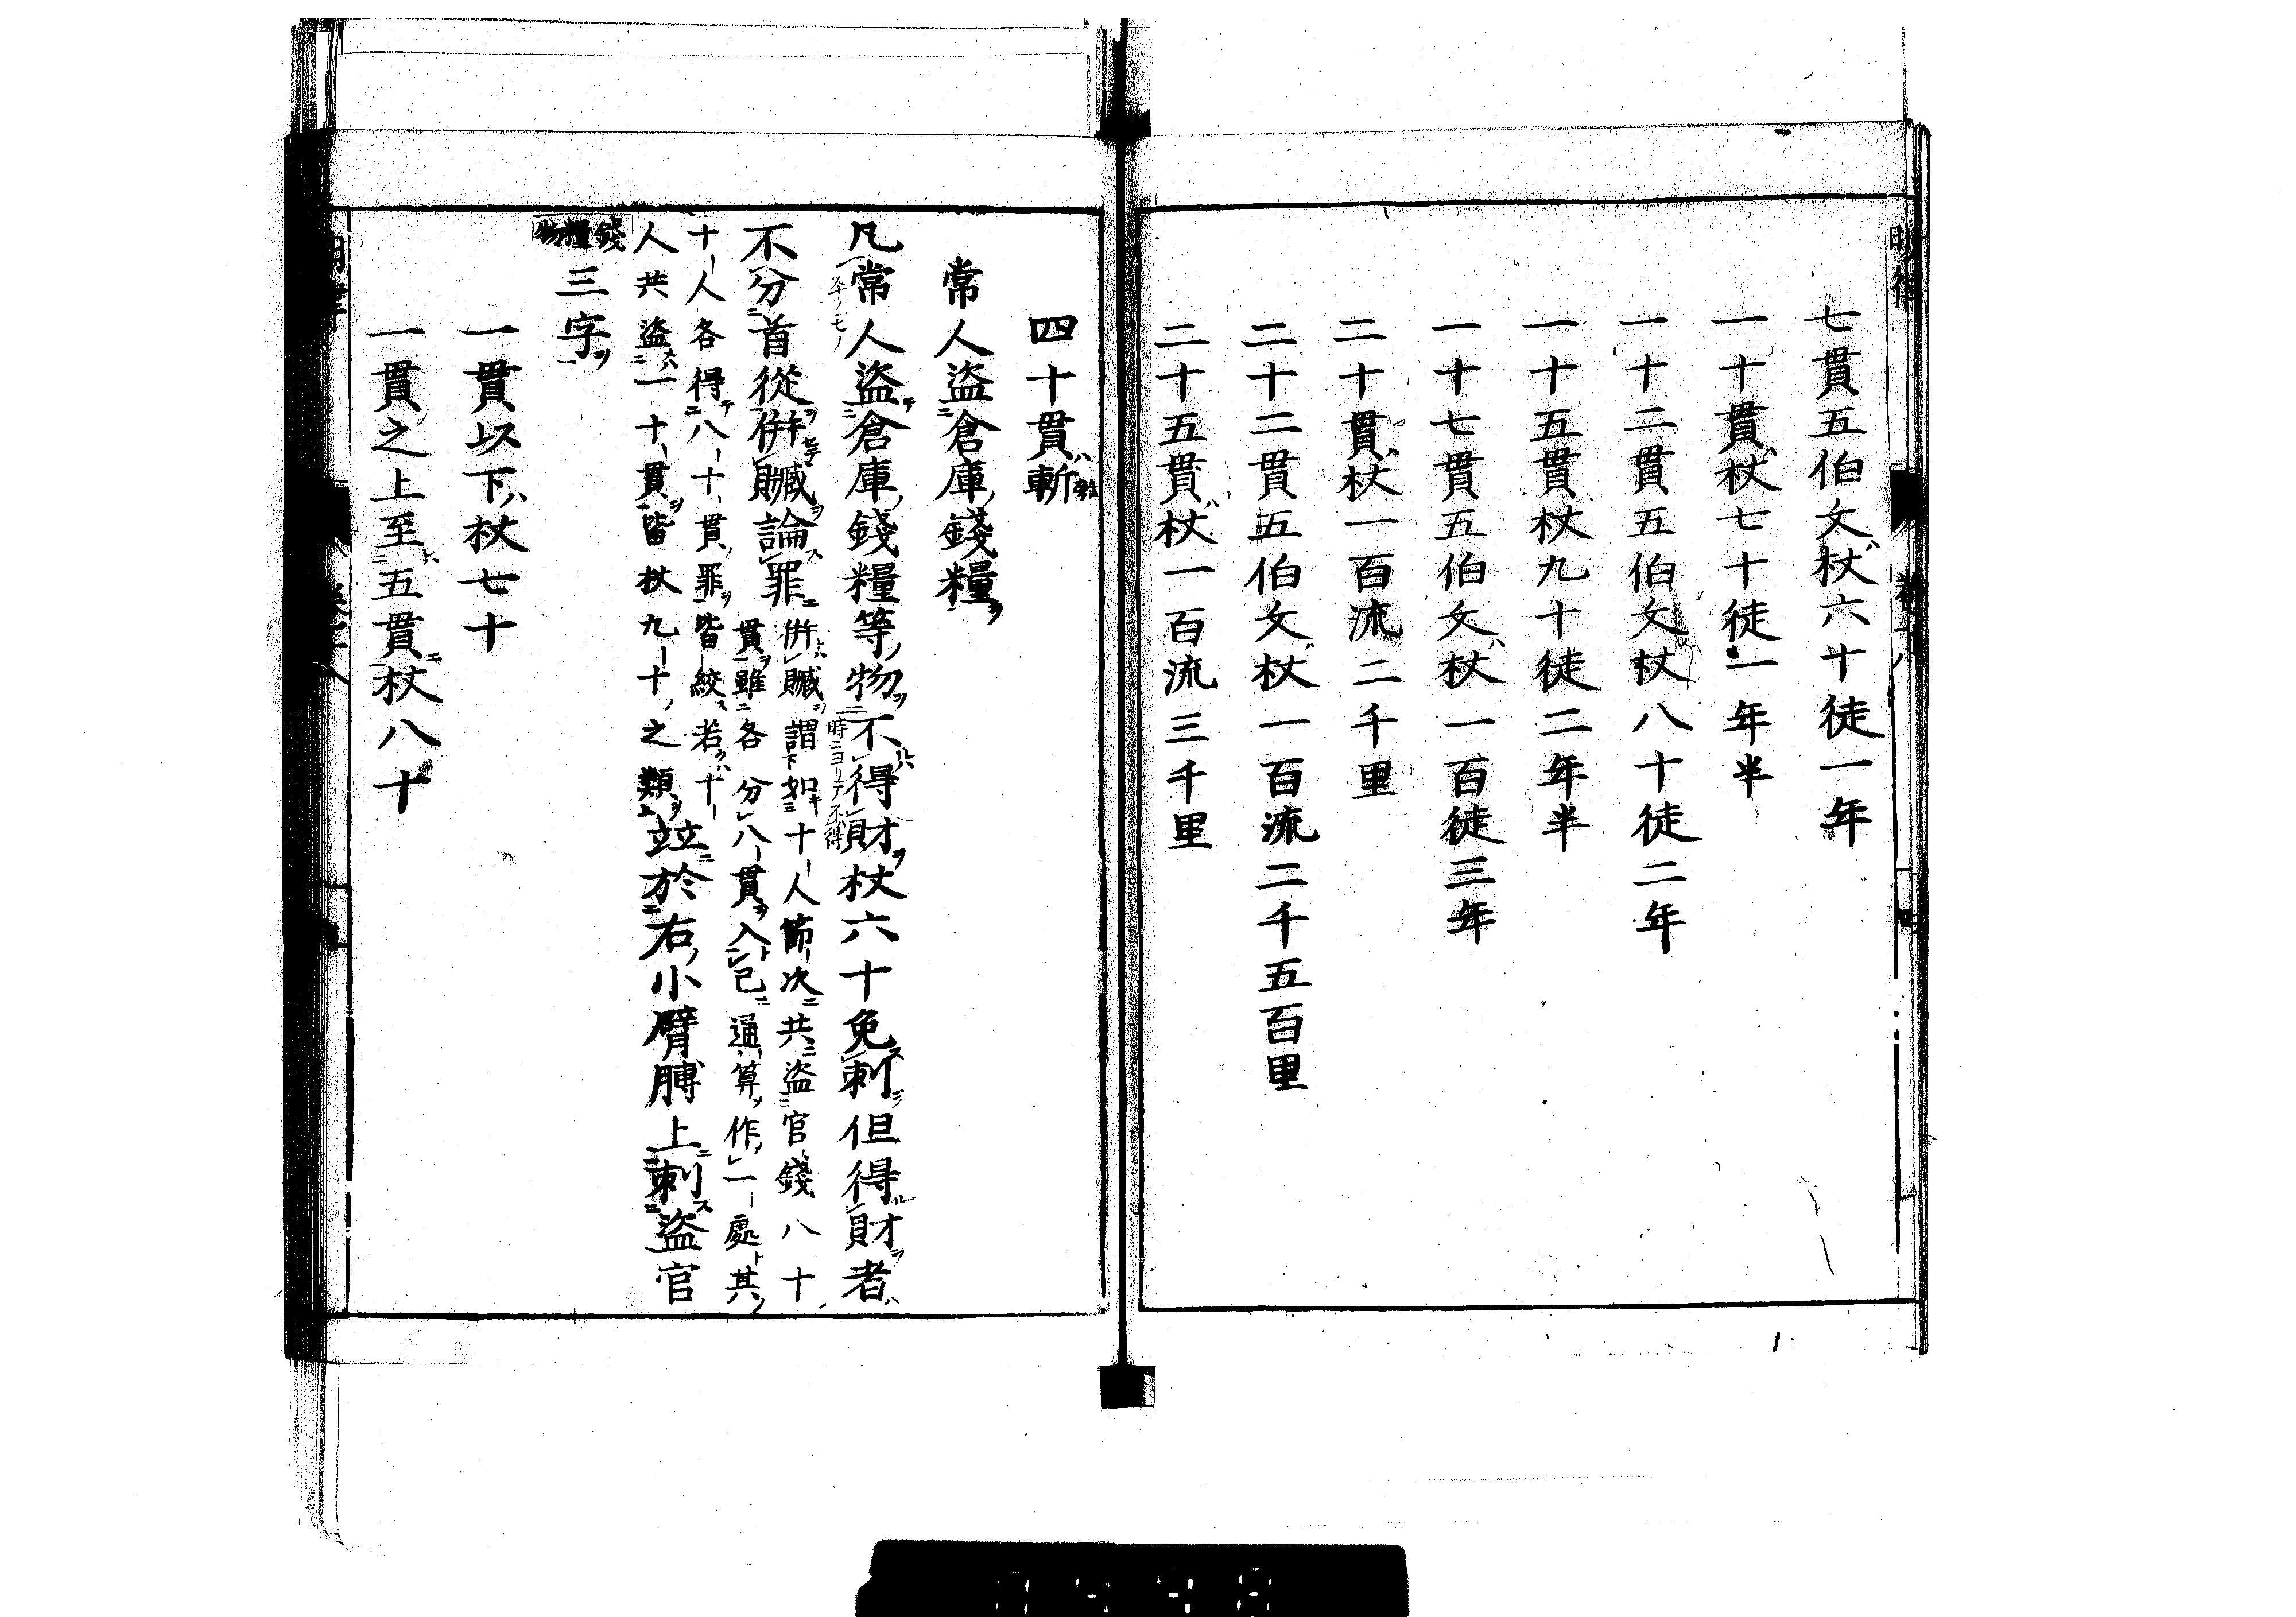 七貫五伯文杖六十徒一年
一十貫杖七十徒一年半
一十二貫五伯文杖八十徒二年
一十五貫杖九十徒二年半
一十七貫五伯文杖一百徒三年
二十貫杖一百流二千里
二十二貫五伯文杖一百流二千五百里
二十五貫杖一百流三千里
四十貫斬
常人盜倉庫錢糧
凡常人盜倉庫錢糧等物不得財杖六十免刺但得財者
時ニヨリテ不得
不分首從併贓論罪
併贓謂如十人節次共盜官錢八十
貫雖各分八貫入己通算作一處其
十人各得八十貫罪皆絞若十
人共盜一十貫皆杖九十之類
竝於右小臂膊上刺盜官
錢糧物
三字
一貫以下杖七十
一貫之上至五貫杖八十